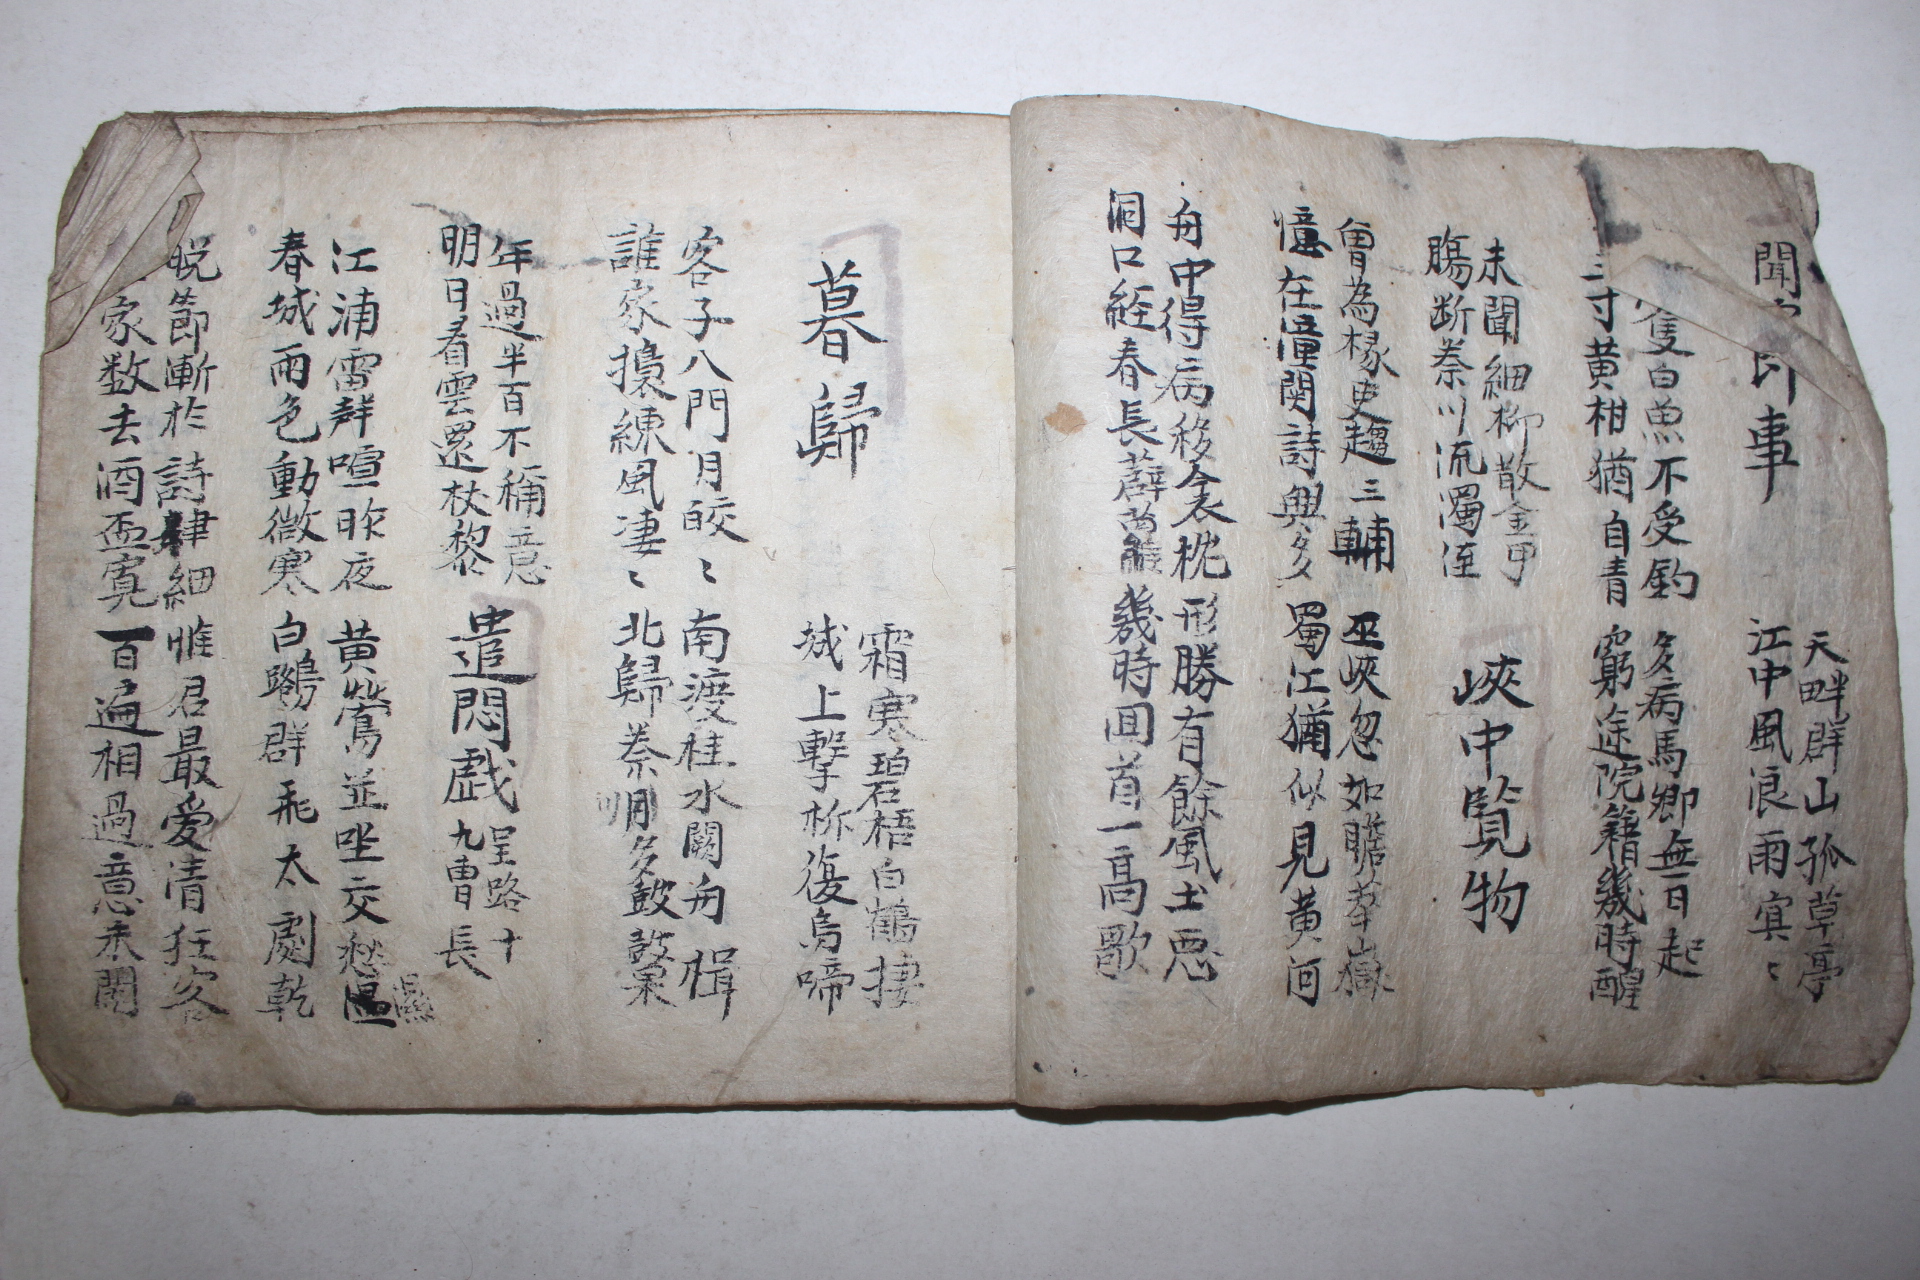 即事
天畔群山孤草亭
江中風浪雨冥〻
隻白魚不受釣 多病馬卿無日起
三寸黄柑猶自青 窮途院籍幾時醒
未聞細柳散金甲
膓断秦川流濁涇
峽中覧物
曾為掾吏趨三輔 巫峽忽如瞻華嶽
憶在潼関詩興多 蜀江猶似見黄河
舟中得病移衾枕 形勝有餘風土惡
洞口経春長薜蘿 幾時回首一高歌
暮歸
霜寒碧梧白鶴捿
城上擊柝復烏啼
客子八門月皎〻 南渡桂水闕舟楫
誰家搗練風凄〻 北歸秦川多鼓鼙
年過半百不稱意
明日看雲還杖黎
遣悶戯呈路十九曹長
江浦雷聲喧昨夜 黄鶯並坐交愁濕
春城雨色動微寒 白鷺群飛太劇乾
晩節漸於詩律細 惟君最愛清狂客
家数去酒盃寛 百遍相過意未闌